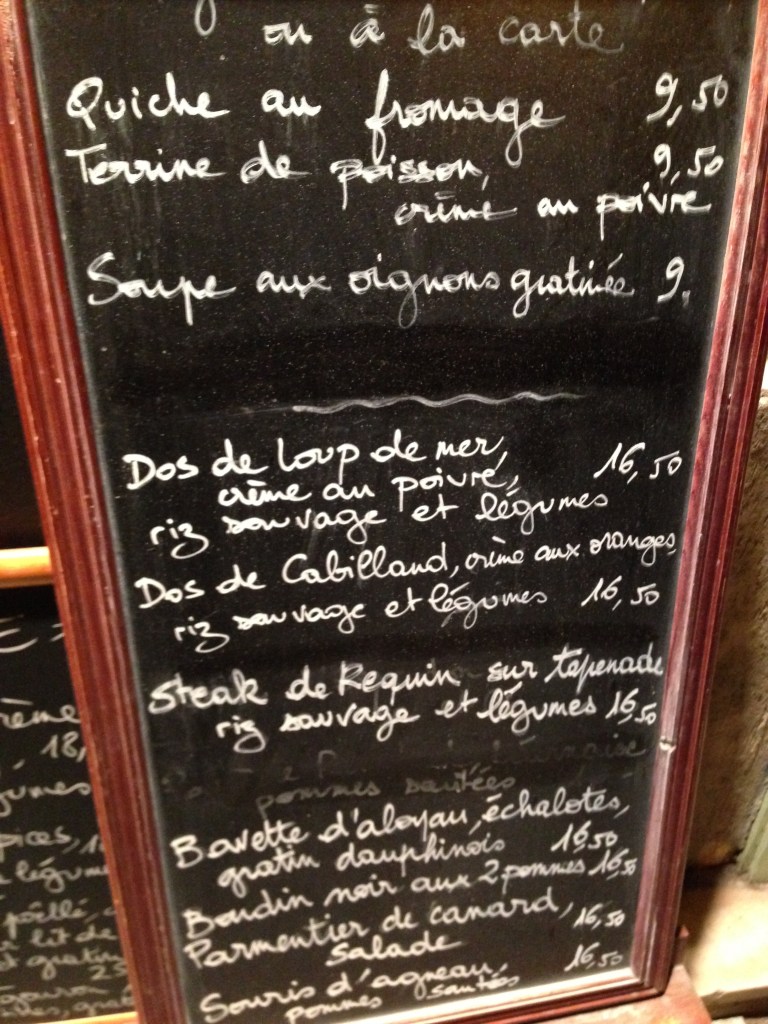 ou à la carte
Quiche au fromage 9,50
Terrine de poisson, 9,50
crème au poivre
Soupe aux oignons gratinée 9.
Dos de loup de mer, 16,50
crème au poivre,
riz sauvage et légumes
Dos de Cabillaud, crème aux oranges
riz sauvage et légumes 16,50
Steak de Requin sur tapenade
riz sauvage et légumes 16,50
pommes sautées
Bavette d'aloyau, échalotes,
gratin dauphinois 16,50
Boudin noir aux 2 pommes 16,50
Parmentier de canard, 16,50
Salade
Souris d'agneau, 16,50
pommes sautées
18,